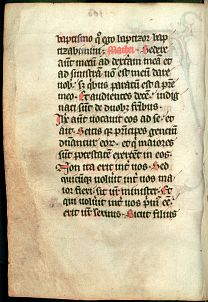 baptismo q̄ ego baptizor bap
tizabimini. Sedere
aūt meū ad dexterā meā et
ad sinistrā nō est meū dare
vob. sz qbus paratū est a pre
meo. Et audientes decē indig
nati sūt de duobz frībus.
Ihc aūt vocavit eos ad se. et
ait. Scitis qz prīcipes gentiū
dnantur eorū. et q maiores
sūt potestatē exercēt in eos.
Non ita erit int vos. Sed
quicūqz voluit int vos ma
ior fieri. sit vr minister. Et
qui voluit int vos prim ee
erit vr servus. Sicut filius